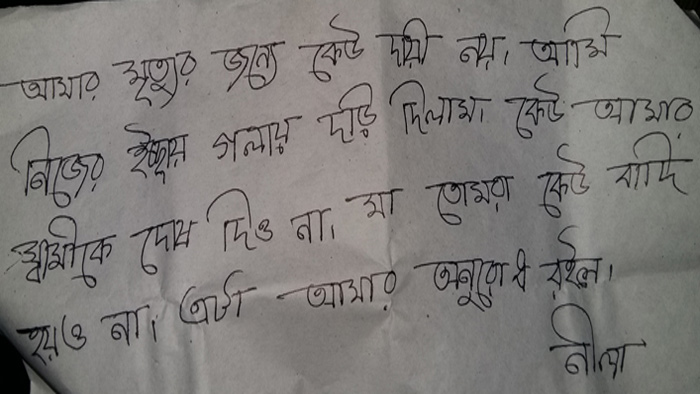 আমার মৃত্যুর জন্যে কেউ দায়ী নয়। আমি
নিজের ইচ্ছায় গলায় দড়ি দিলাম। কেউ আমার
স্বামীকে দোষ দিও না। মা তোমরা কেউ বাদি
হয়ও না। এটা আমার অনুরোধ রইল।
নীলা